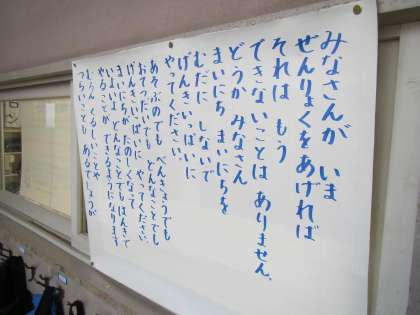 みなさんが いま
ぜんりょくをあげれば
それは もう
できないことは ありません。
どうか みなさん
まいにち まいにちを
むだに しないで
げんきいっぱいに
やってください。
あそぶのでも べんきょうでも
おてつだいでも どんなことでも
げんきいっぱいに やってください
まいにちがたのしくなって
いよいよ どんなことでもほんきで
やることが できるようになります
むろん くるしいことや
つらいことも あるでしょうが